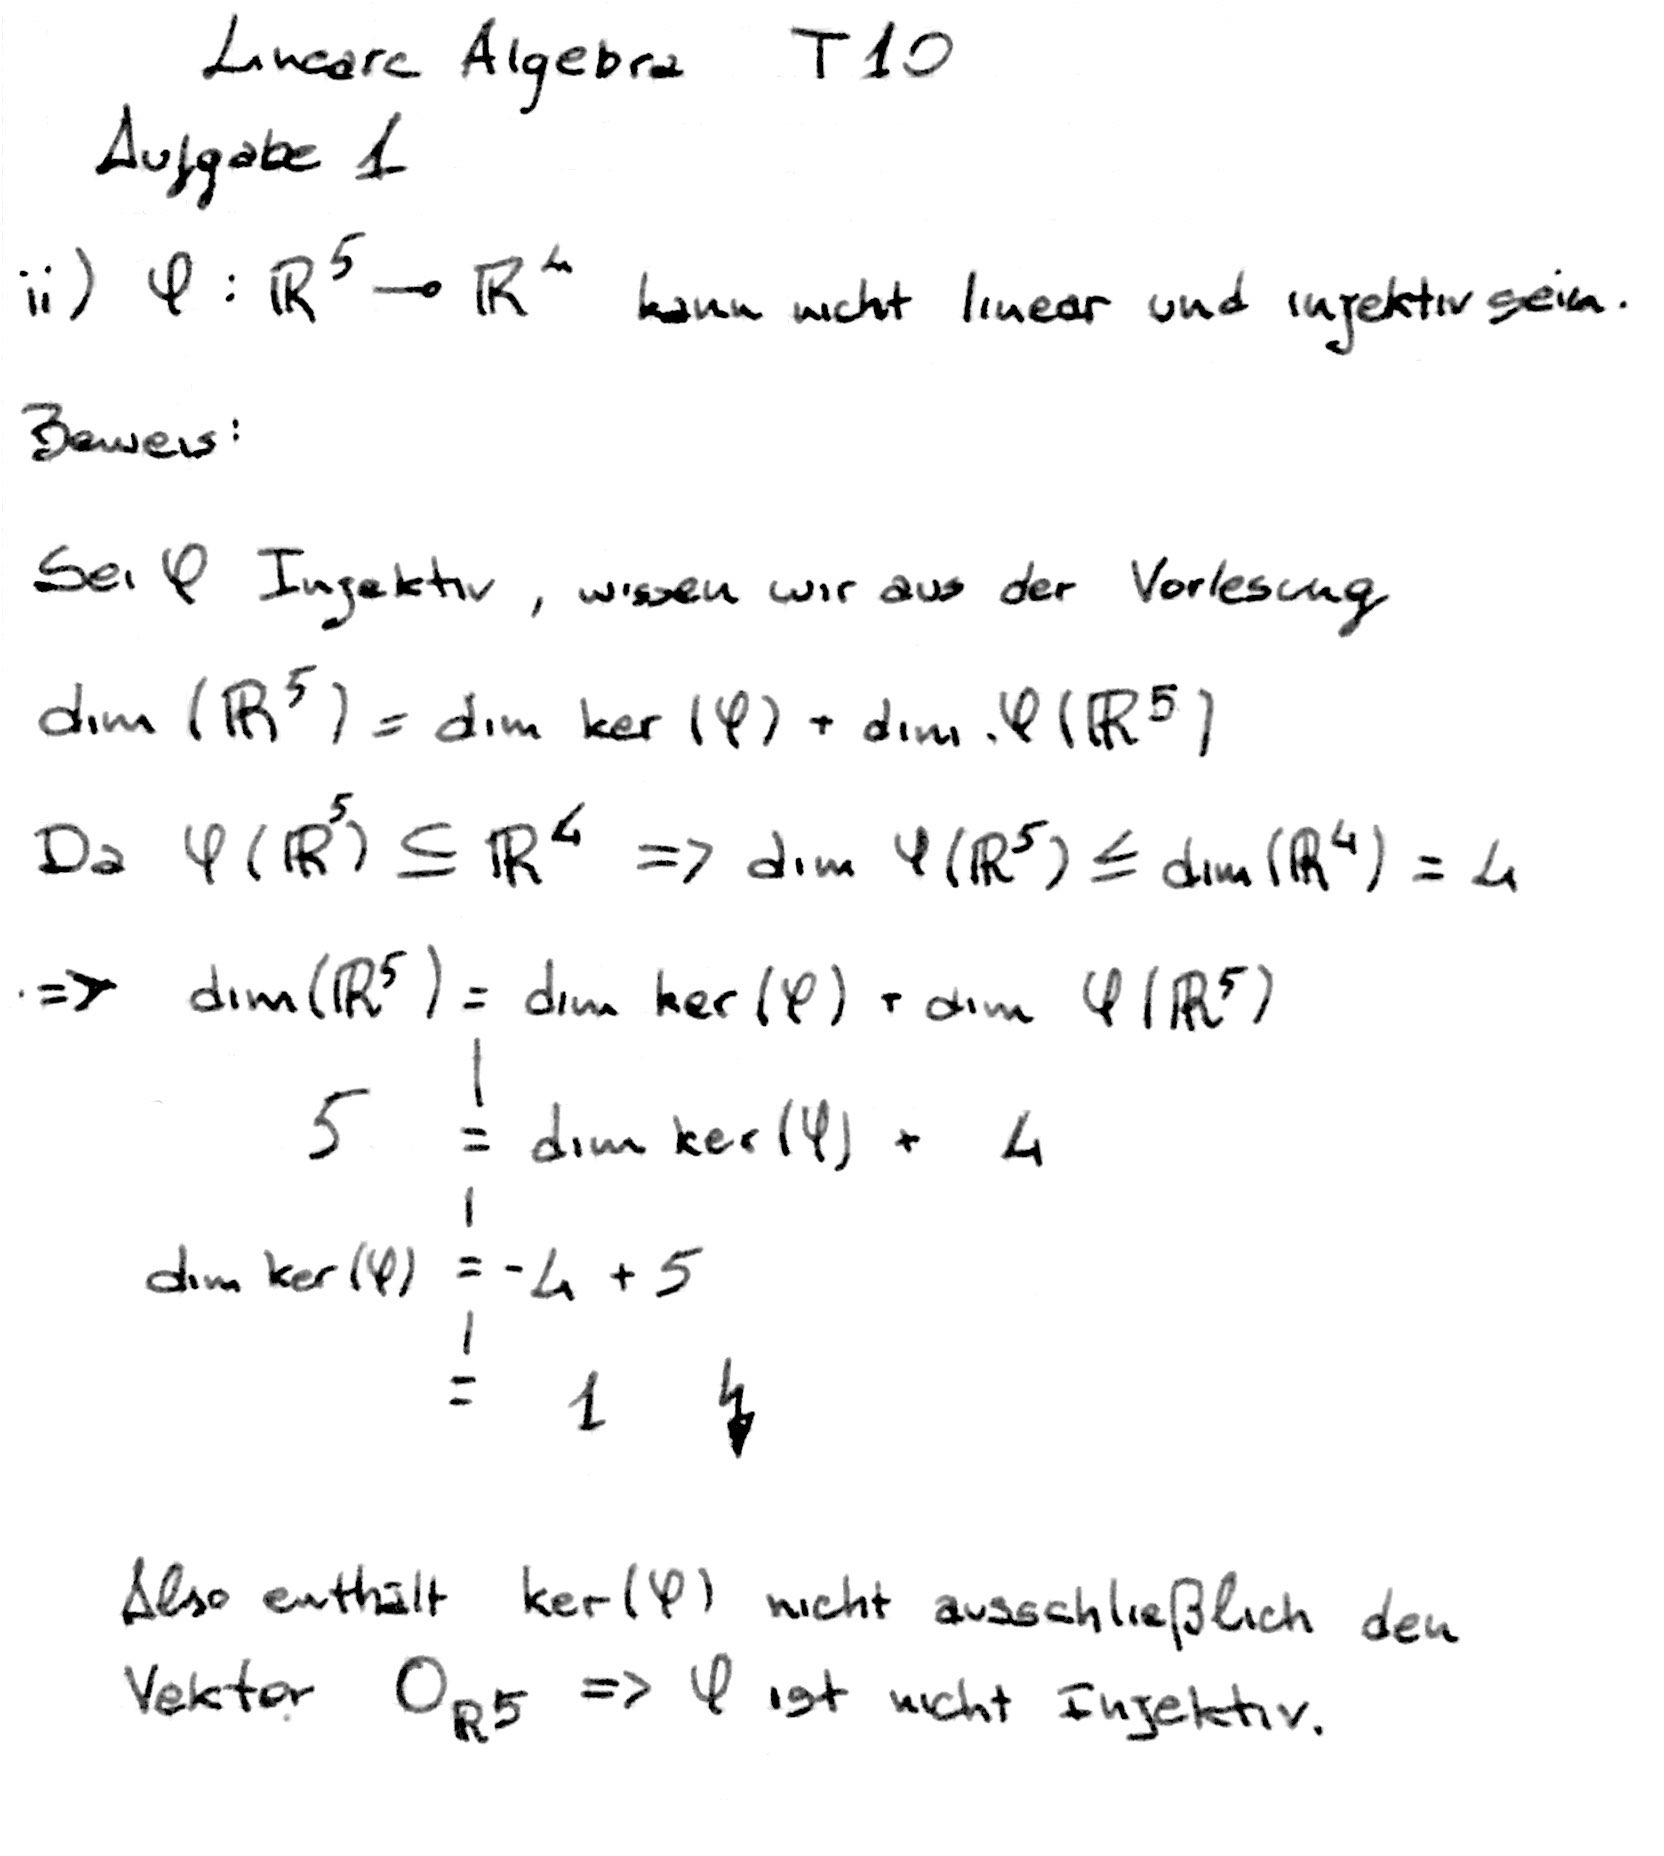 Lineare Algebra T10
Aufgabe 1
ii) φ : ℝ⁵ → ℝ⁴ kann nicht linear und injektiv sein.
Beweis:
Sei φ Injektiv, wissen wir aus der Vorlesung
dim (ℝ⁵) = dim ker (φ) + dim φ(ℝ⁵)
Da φ(ℝ⁵) ⊆ ℝ⁴ => dim φ(ℝ⁵) ≤ dim(ℝ⁴) = 4
=> dim(ℝ⁵) = dim ker(φ) + dim φ(ℝ⁵)
5 = dim ker(φ) + 4
dim ker(φ) = -4 + 5
= 1 ↯
Also enthält ker(φ) nicht ausschließlich den
Vektor 0_ℝ5 => φ ist nicht Injektiv.